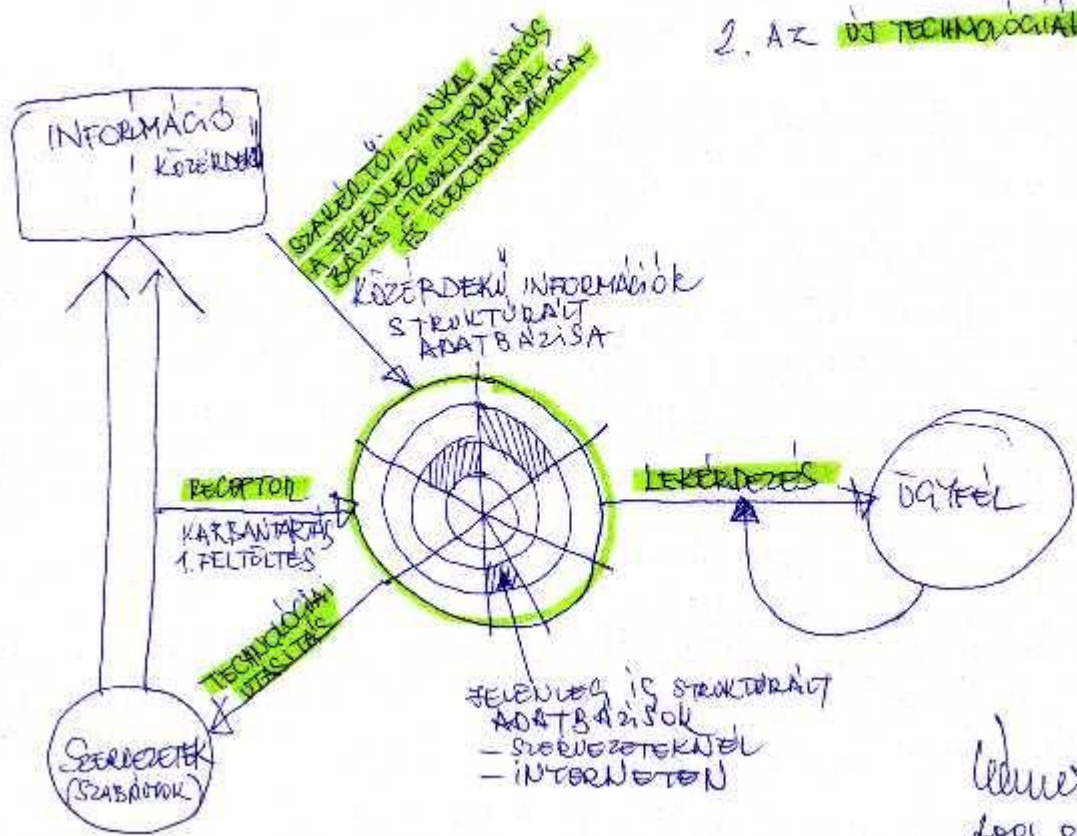 2. AZ ÚJ TECHNOLÓGIÁK
INFORMÁCIÓ
KÖZÉRDEKŰ
SZAKÉRTŐI MUNKA
A JELENLEGI INFORMÁCIÓS
BÁZIS STRUKTURÁLÁSA
ÉS
KÖZÉRDEKŰ INFORMÁCIÓK
STRUKTÚRÁLT
ADATBÁZISA
RECEPTOR
KARBANTARTÁS
1. FELTÖLTÉS
LEKÉRDEZÉS
ÜGYFÉL
TECHNOLÓGIAI
UTASÍTÁS
JELENLEG IS STRUKTÚRÁLT
ADATBÁZISOK
- SZERVEZETEKNÉL
- INTERNETEN
SZERVEZETEK